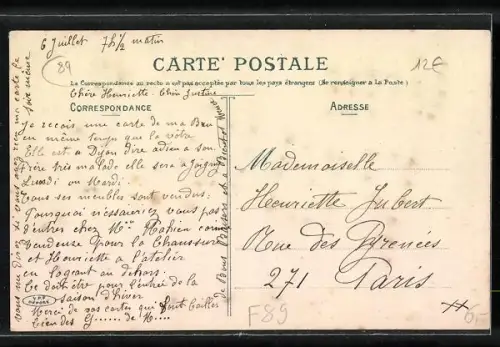 6 Juillet 7h 1/2 matin
89
12€
CARTE POSTALE
La Correspondance au recto n'est pas acceptée par tous les pays étrangers (Se renseigner à La Poste)
CORRESPONDANCE
ADRESSE
Chère Henriette Chère Justine
Je reçois une carte de ma
en même temps que la vôtre
Elle est à Dijon dire adieu à son
frère très malade elle sera à Joigny
Lundi ou Mardi.
tous ses meubles sont vendus;
Pourquoi n'essaieriez vous pas
d'entrer chez Mr comme
Vendeuse pour la Chaussure
et Henriette à l'atelier
en logeant au dehors.
Ce doit être pour l'entrée de la
saison d'hiver
Merci de vos cartes qui
G...... de N....
vous me direz si vous avez reçu ma carte le
soir même
de Bons Baisers et à Bientôt
Mademoiselle
Henriette Jubert
Rue des Pyrénées
271 Paris
F89
6F